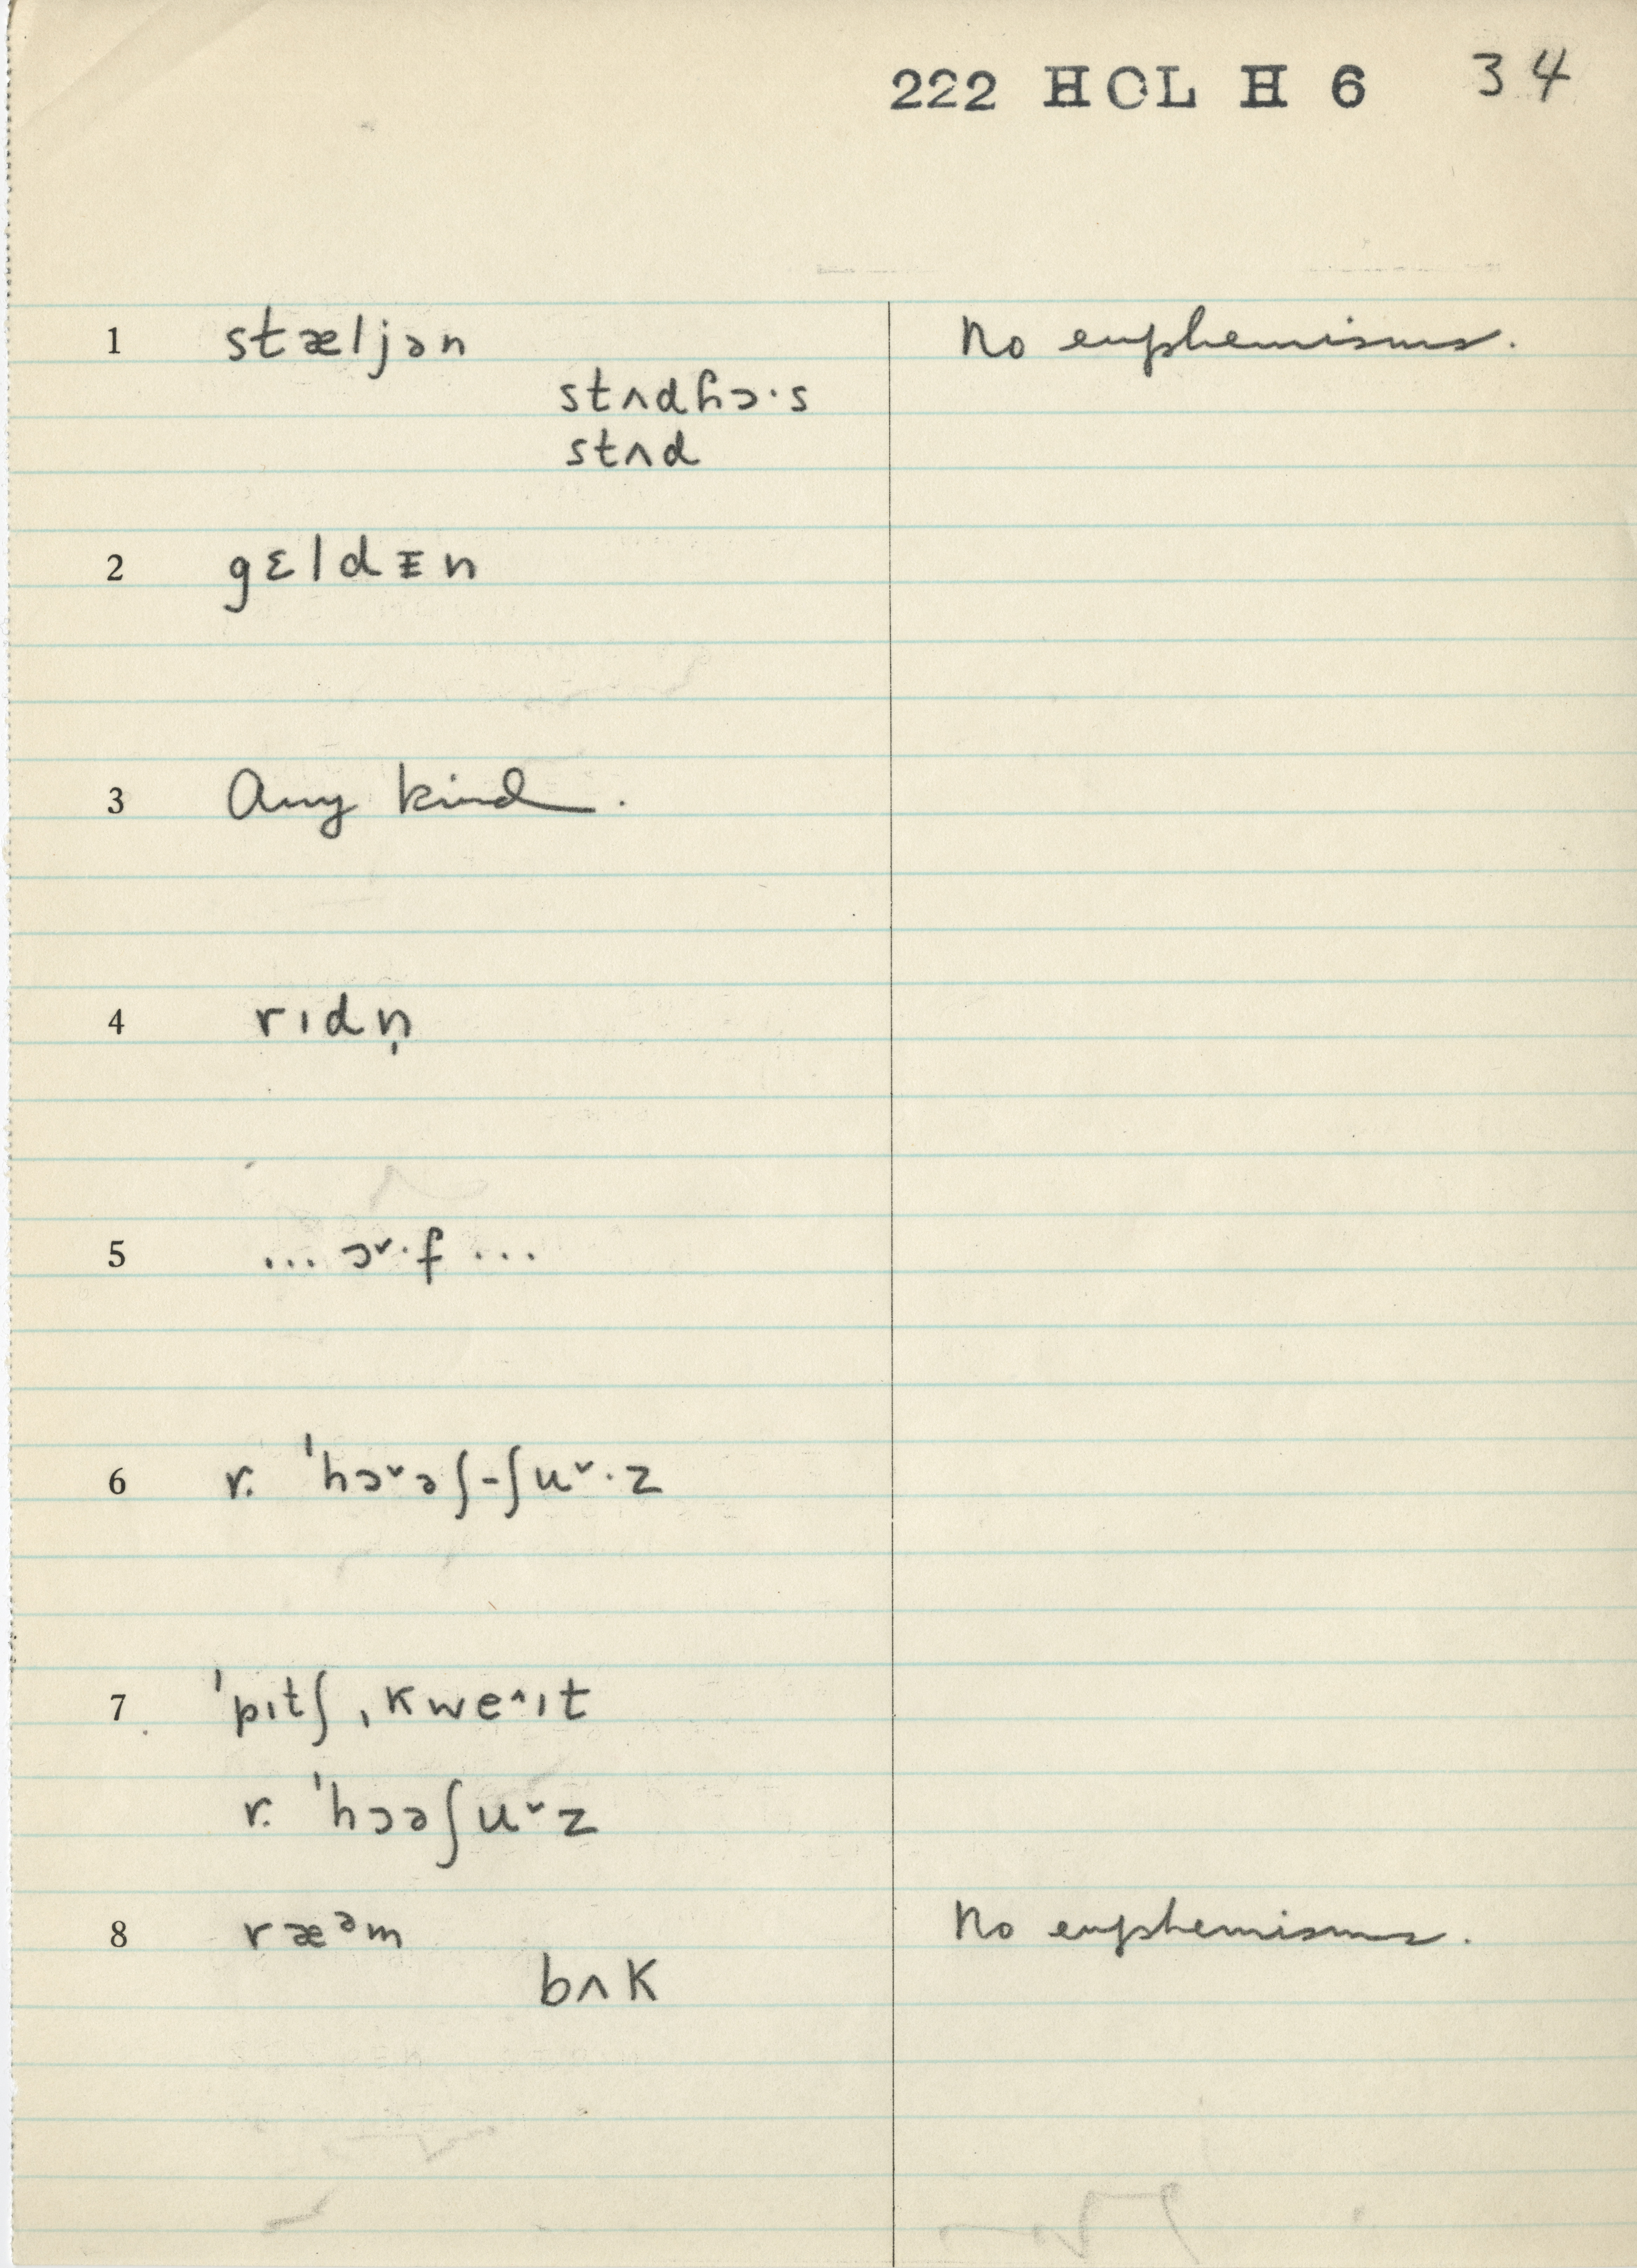 222 HOL H 6 34
1 stæljən No euphemisms.
stʌdɦɔ·s
stʌd
2 gɛldᵻn
3 Any kind.
4 rɪdn̩
5 ... ɔ˅·f ...
6 r. ˈhɔ˅əʃ-ʃu˅·z
7 ˈpɪtʃˌkwe˄ɪt
r. ˈhɔəʃu˅z
8 ræᵊm No euphemisms.
bʌk